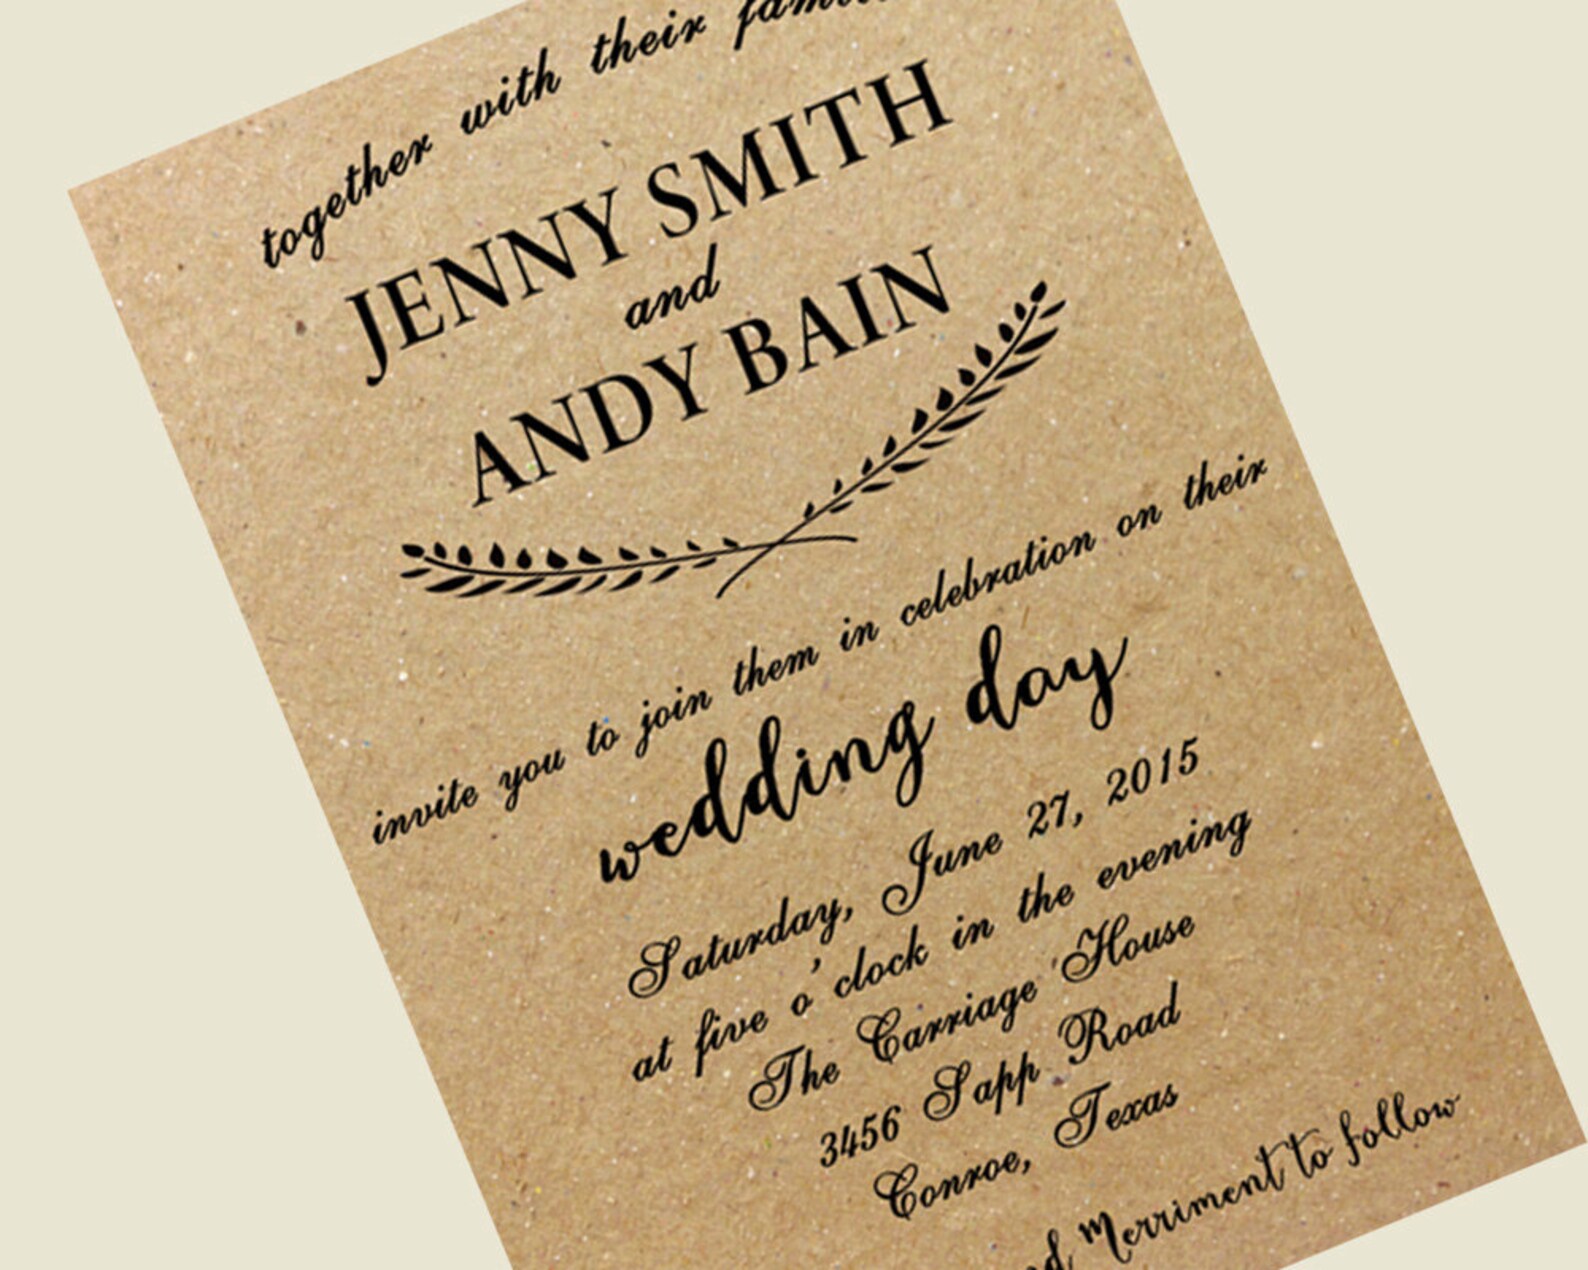 together with their
JENNY SMITH
and
ANDY BAIN
invite you to join them in celebration on their
wedding day
Saturday, June 27, 2015
at five o'clock in the evening
The Carriage House
3456 Sapp Road
Conroe, Texas
Merriment to follow